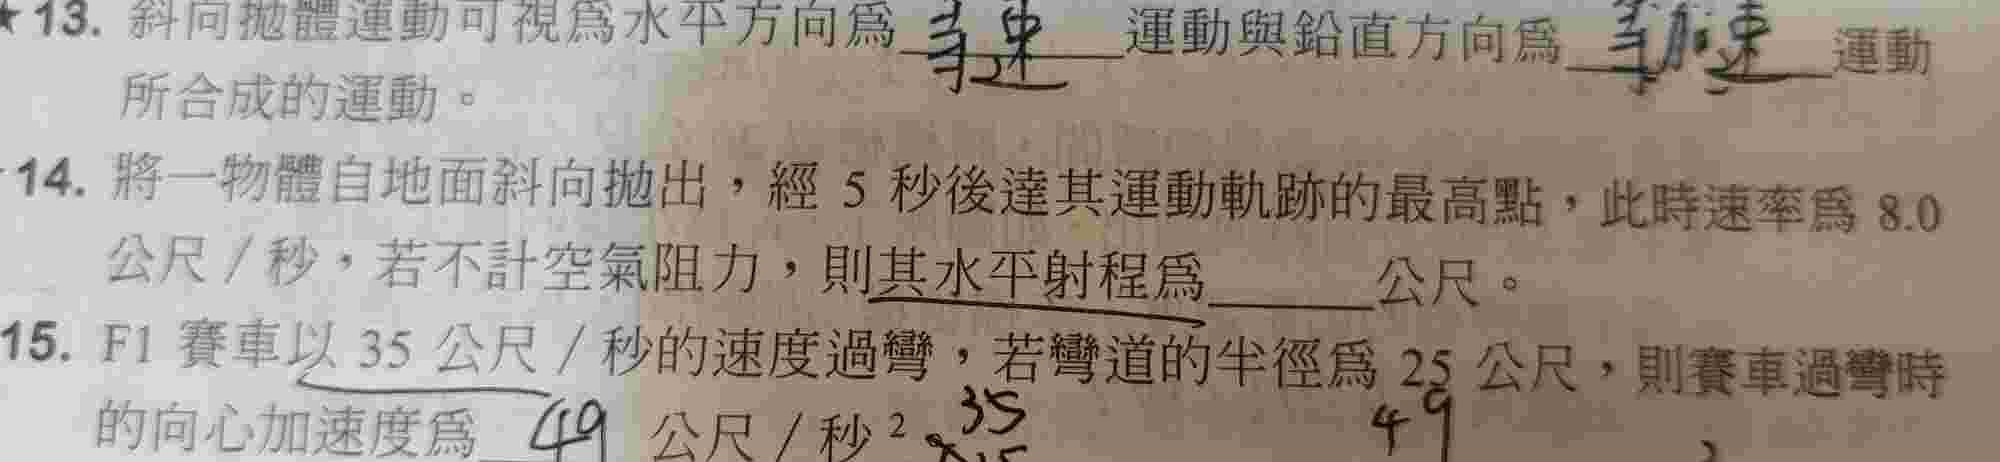 ★13. 斜向拋體運動可視為水平方向為 等速 運動與鉛直方向為 等加速 運動
所合成的運動。
14. 將一物體自地面斜向拋出，經 5 秒後達其運動軌跡的最高點，此時速率為 8.0
公尺／秒，若不計空氣阻力，則其水平射程為______公尺。
15. F1 賽車以 35 公尺／秒的速度過彎，若彎道的半徑為 25 公尺，則賽車過彎時
的向心加速度為 49 公尺／秒² 35 49